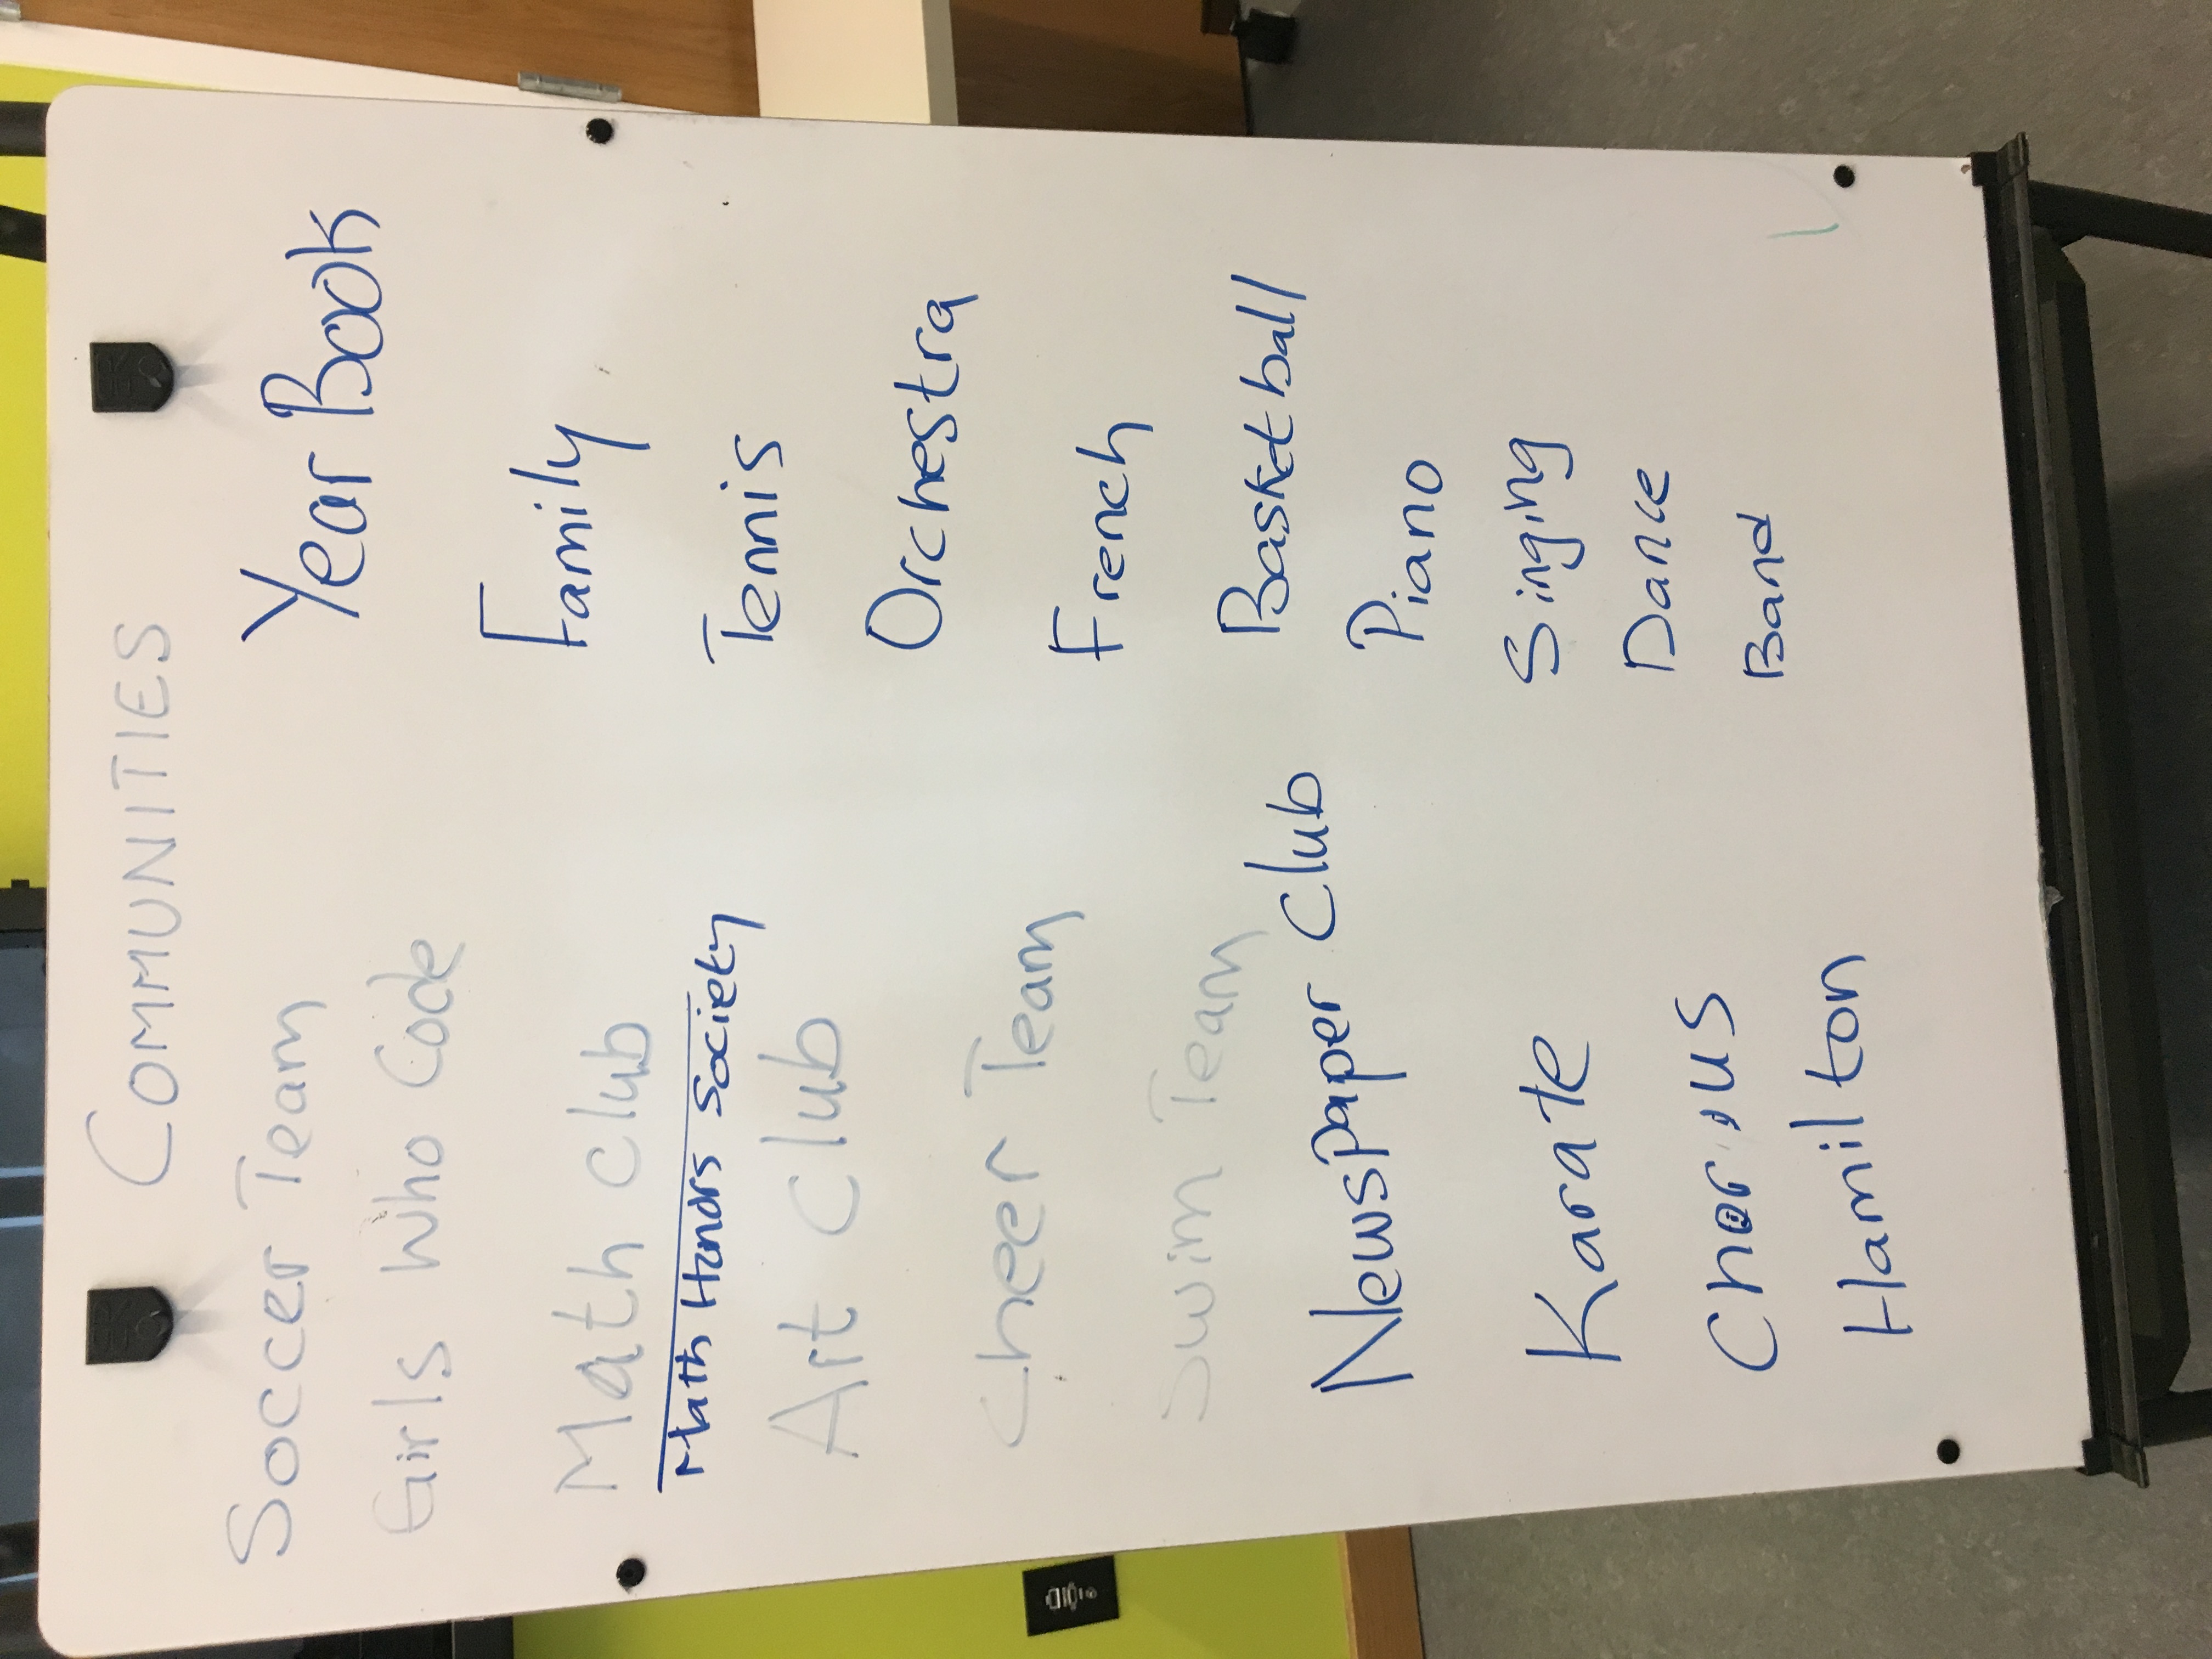 COMMUNITIES
Soccer Team
Girls Who Code
Math club
Math Honors Society
Art Club
Cheer Team
Swim Team
Newspaper Club
Karate
Chorus
Hamilton
Year Book
Family
Tennis
Orchestra
French
Basketball
Piano
Singing
Dance
Band